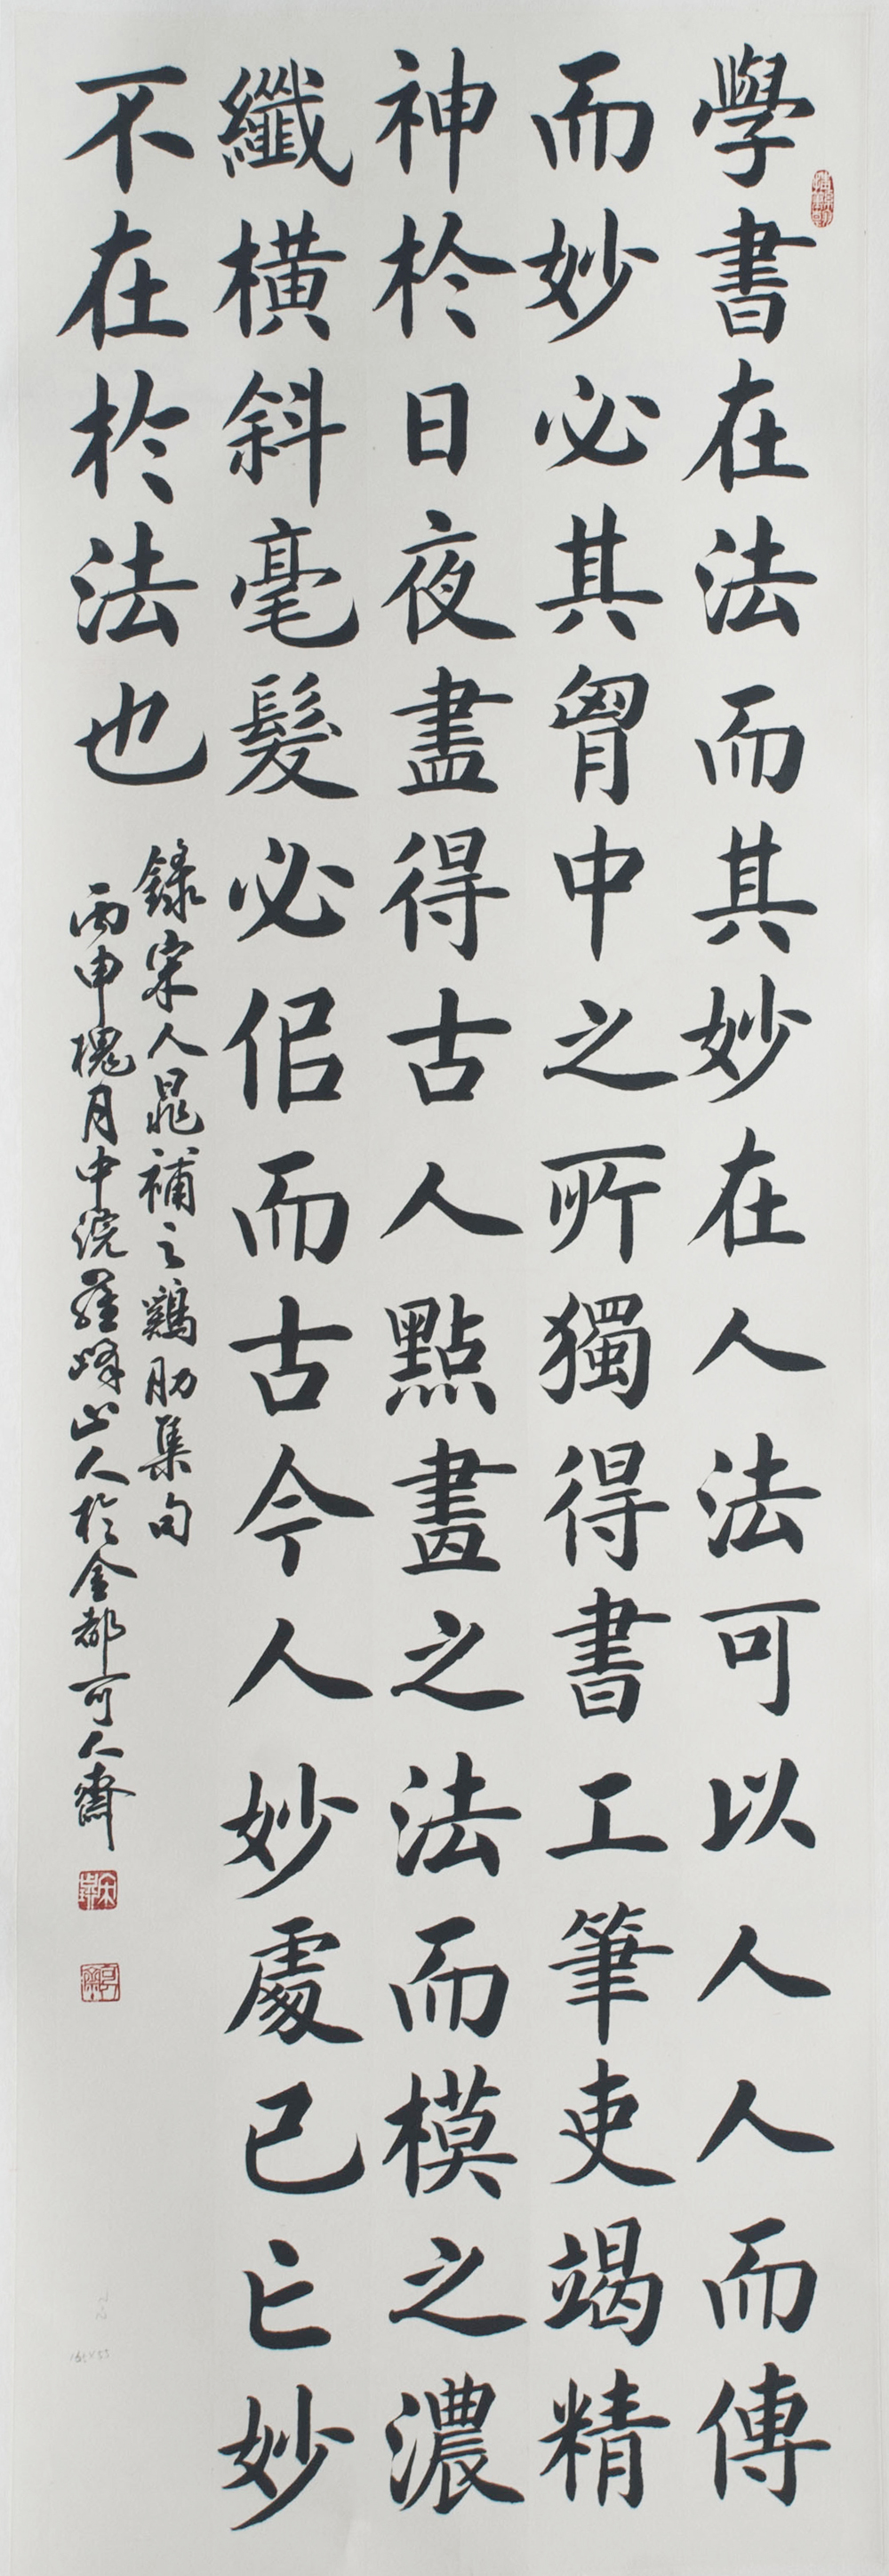 學書在法而其妙在人法可以人人而傳
而妙必其胷中之所獨得書工筆吏竭精
神於日夜盡得古人點畫之法而模之濃
纖橫斜毫髮必佀而古今人妙處已亡妙
不在於法也
錄宋人晁補之鷄肋集句
丙申槐月中浣羅峰山人於金都可人齋